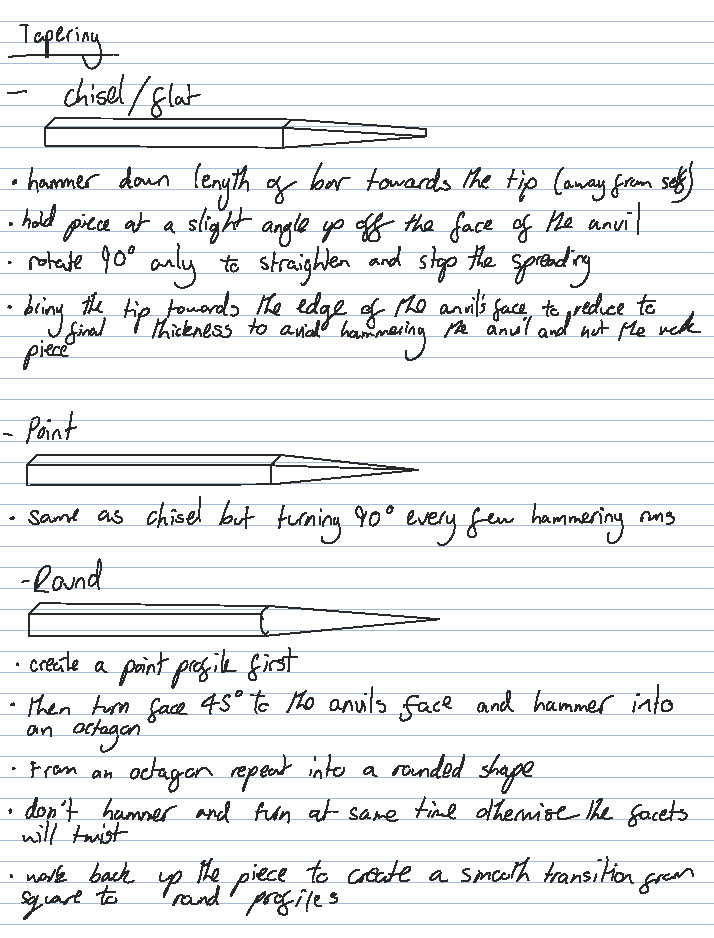 Tapering
- chisel/flat
• hammer down length of bar towards the tip (away from self)
• hold piece at a slight angle up off the face of the anvil
• rotate 90° only to straighten and stop the spreading
• bring the tip towards the edge of the anvil's face to reduce to
final thickness to avoid hammering the anvil and not the work
piece
- Point
• same as chisel but turning 90° every few hammering runs
- Round
• create a point profile first
• then turn face 45° to the anvils face and hammer into
an octagon
• From an octagon repeat into a rounded shape
• don't hammer and turn at same time otherwise the facets
will twist
• work back up the piece to create a smooth transition from
square to round profiles